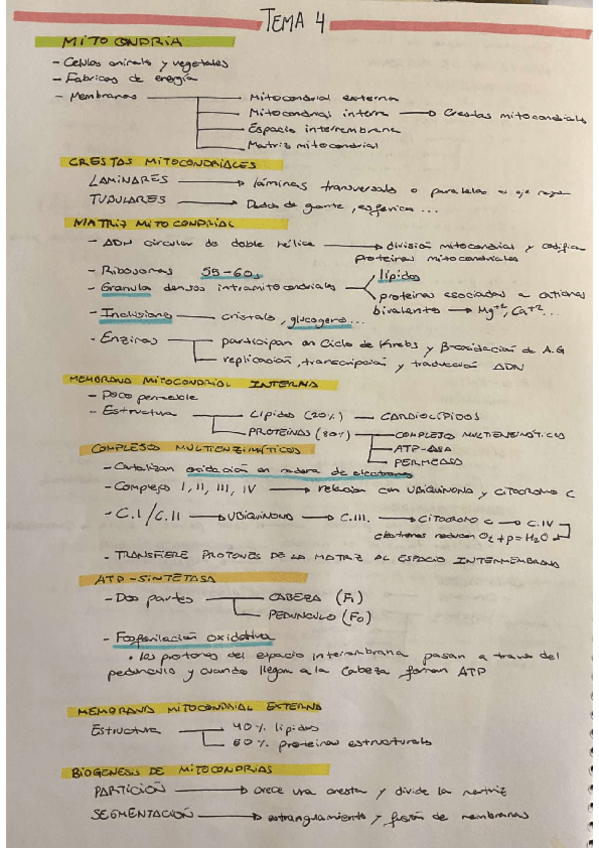 TEMA 4
MITOCONDRIA
- Células animales y vegetales
- Fabricas de energía
- Membranas — Mitocondrial externa
Mitocondrias interna → Crestas mitocondriales
Espacio intermembrana
Matriz mitocondrial
CRESTAS MITOCONDRIALES
LAMINARES → láminas transversales o paralelas al eje mayor
TUBULARES → Dedos de guante, esférica...
MATRIZ MITOCONDRIAL
- ADN circular de doble hélice → división mitocondrial y codifica
proteinas mitocondriales
- Ribosomas 55-60s
lípidos
- Granulos densos intramitocondriales
proteinas asociadas a cationes
bivalentes → Mg+2, Ca+2...
- Inclusiones — cristales, glucogeno...
- Enzimas — participan en Ciclo de Krebs y β-oxidación de A.G
replicación, transcripción y traducción ADN
MEMBRANA MITOCONDRIAL INTERNA
- Poco permeable
- Estructura — LIPIDOS (20%) — CARDIOLÍPIDOS
PROTEÍNAS (80%) — COMPLEJOS MULTIENZIMÁTICOS
ATP-ASA
PERMEASA
COMPLEJOS MULTIENZIMÁTICOS
- Catalizan oxidación en cadena de electrones
- Complejo I, II, III, IV → relacion con UBIQUINONA y CITOCROMO C
- C.I / C.II → UBIQUINONA → C.III. → CITOCROMO C → C.IV
electrones reducen O2 + p = H2O
- TRANSFIERE PROTONES DE LA MATRIZ AL ESPACIO INTERMEMBRANA
ATP-SINTETASA
- Dos partes — CABEZA (F1)
PEDUNCULO (F0)
- Fosforilación oxidativa
• Los protones del espacio intermembrana pasan a traves del
pedunculo y cuando llegan a la cabeza forman ATP
MEMBRANA MITOCONDRIAL EXTERNA
Estructura — 40% lípidos
60% proteinas estructurales
BIOGENESIS DE MITOCONDRIAS
PARTICIÓN → crece una cresta y divide la matriz
SEGMENTACIÓN → estrangulamiento y fusión de membranas